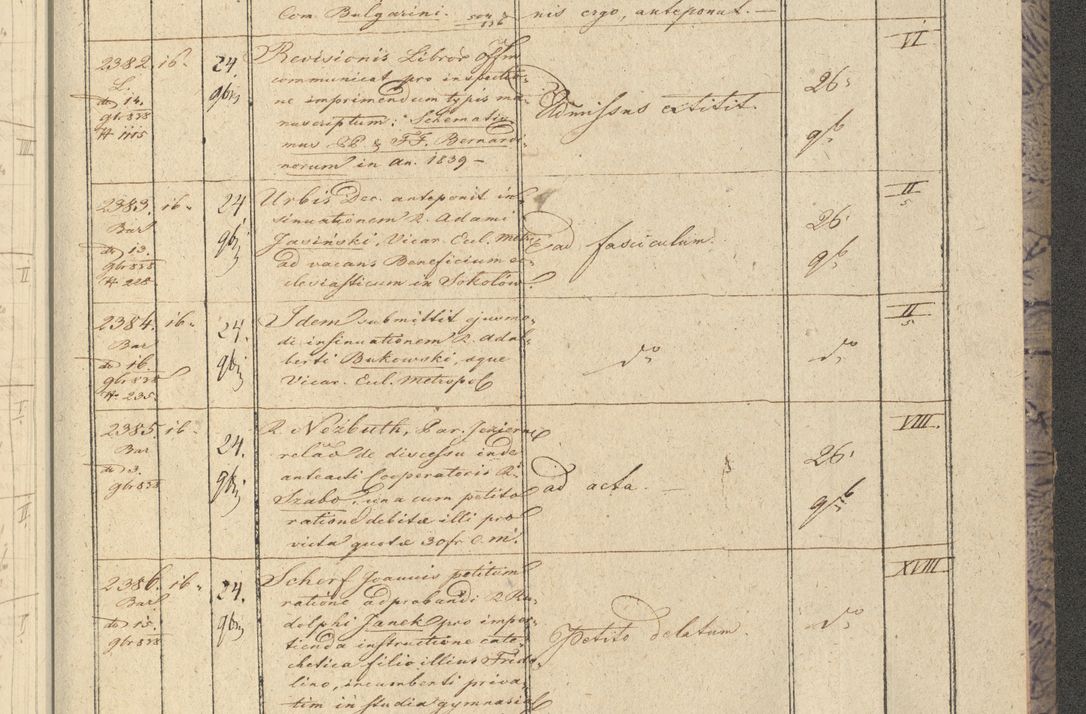 Com. Bulgarini. nis ergo, anteponat. —
VI
2382. 16. 24. 9br
L.
do 14.
9br 838
Revisionis Libror Offm
communicat pro inspectio-
ne imprimendum typis ma-
nuscriptum: Schematis-
mus PP. & FF. Bernardi-
norum in an. 1839 —
Admissus extitit.
26.
9b
II
5
2383. 16. 24 9br
Bar
do 13.
9br 838
Urbis Dec. anteponit in-
sinuationem R. Adami
Jasiński, Vicar. Eccl. Metr
ad vacans Beneficium ec-
clesiasticum in Sokolów.
ad fasciculum.
26.
9b
II
5
2384. 16. 24. 9br
Bar
do 16.
9br 838
N. 235.
Idem submittit ejusmo-
di insinuationem R. Adal-
berti Bukowski, aque
Vicar. Eccl. Metropol
do
do
VIII.
2385. 16. 24. 9br
Bar
do 3.
9br 838
R. Nezbuth, Par. Jezierna
relaõ de discessu inde
anteacti Cooperatoris R.
Szabo, una cum petito
ratione debitæ illi pro
victu quotæ 30fr C. m.
ad acta. —
26.
9b
XVIII
2386. 16. 24. 9br
Bar
do 15.
9br 838
Scherf Joannis petitum
ratione adprobandi R. Ru-
dolphi Janek pro imper-
tienda instructione cate-
chetica filio illius Frido-
lino, incumbenti priva-
tim in studia gymnasial
Petito delatum.
do